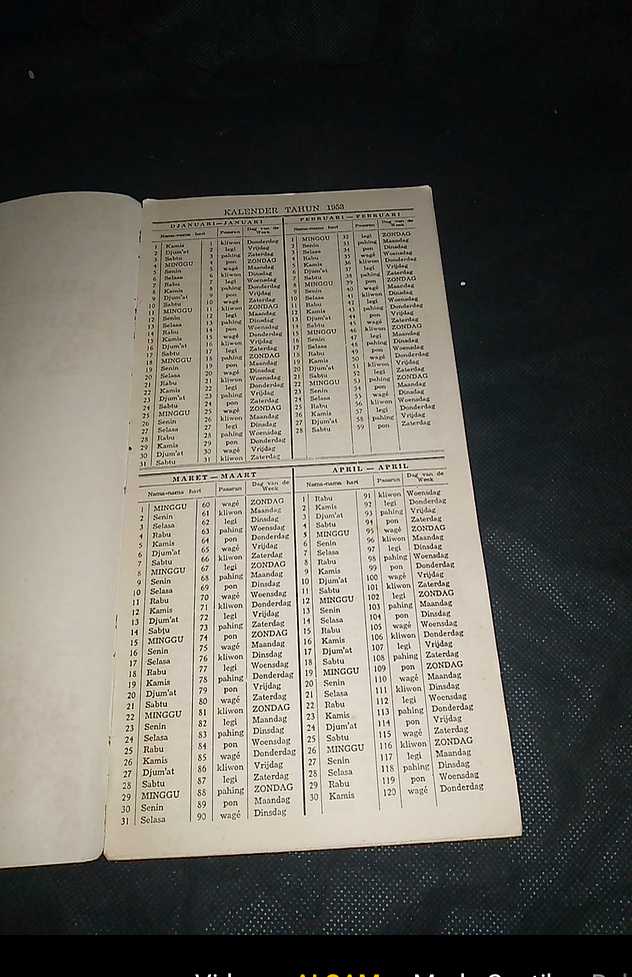 KALENDER TAHUN 1953
DJANUARI—JANUARI
Nama-nama hari Pasaran Dag van de Week
1 Kamis 1 kliwon Donderdag
2 Djum'at 2 legi Vrijdag
3 Sabtu 3 pahing Zaterdag
4 MINGGU 4 pon ZONDAG
5 Senin 5 wagé Maandag
6 Selasa 6 kliwon Dinsdag
7 Rabu 7 legi Woensdag
8 Kamis 8 pahing Donderdag
9 Djum'at 9 pon Vrijdag
10 Sabtu 10 wagé Zaterdag
11 MINGGU 11 kliwon ZONDAG
12 Senin 12 legi Maandag
13 Selasa 13 pahing Dinsdag
14 Rabu 14 pon Woensdag
15 Kamis 15 wagé Donderdag
16 Djum'at 16 kliwon Vrijdag
17 Sabtu 17 legi Zaterdag
18 MINGGU 18 pahing ZONDAG
19 Senin 19 pon Maandag
20 Selasa 20 wagé Dinsdag
21 Rabu 21 kliwon Woensdag
22 Kamis 22 legi Donderdag
23 Djum'at 23 pahing Vrijdag
24 Sabtu 24 pon Zaterdag
25 MINGGU 25 wagé ZONDAG
26 Senin 26 kliwon Maandag
27 Selasa 27 legi Dinsdag
28 Rabu 28 pahing Woensdag
29 Kamis 29 pon Donderdag
30 Djum'at 30 wagé Vrijdag
31 Sabtu 31 kliwon Zaterdag
FEBRUARI—FEBRUARI
Nama-nama hari Pasaran Dag van de Week
1 MINGGU 32 legi ZONDAG
2 Senin 33 pahing Maandag
3 Selasa 34 pon Dinsdag
4 Rabu 35 wagé Woensdag
5 Kamis 36 kliwon Donderdag
6 Djum'at 37 legi Vrijdag
7 Sabtu 38 pahing Zaterdag
8 MINGGU 39 pon ZONDAG
9 Senin 40 wagé Maandag
10 Selasa 41 kliwon Dinsdag
11 Rabu 42 legi Woensdag
12 Kamis 43 pahing Donderdag
13 Djum'at 44 pon Vrijdag
14 Sabtu 45 wagé Zaterdag
15 MINGGU 46 kliwon ZONDAG
16 Senin 47 legi Maandag
17 Selasa 48 pahing Dinsdag
18 Rabu 49 pon Woensdag
19 Kamis 50 wagé Donderdag
20 Djum'at 51 kliwon Vrijdag
21 Sabtu 52 legi Zaterdag
22 MINGGU 53 pahing ZONDAG
23 Senin 54 pon Maandag
24 Selasa 55 wagé Dinsdag
25 Rabu 56 kliwon Woensdag
26 Kamis 57 legi Donderdag
27 Djum'at 58 pahing Vrijdag
28 Sabtu 59 pon Zaterdag
MARET — MAART
Nama-nama hari Pasaran Dag van de Week
1 MINGGU 60 wagé ZONDAG
2 Senin 61 kliwon Maandag
3 Selasa 62 legi Dinsdag
4 Rabu 63 pahing Woensdag
5 Kamis 64 pon Donderdag
6 Djum'at 65 wagé Vrijdag
7 Sabtu 66 kliwon Zaterdag
8 MINGGU 67 legi ZONDAG
9 Senin 68 pahing Maandag
10 Selasa 69 pon Dinsdag
11 Rabu 70 wagé Woensdag
12 Kamis 71 kliwon Donderdag
13 Djum'at 72 legi Vrijdag
14 Sabtu 73 pahing Zaterdag
15 MINGGU 74 pon ZONDAG
16 Senin 75 wagé Maandag
17 Selasa 76 kliwon Dinsdag
18 Rabu 77 legi Woensdag
19 Kamis 78 pahing Donderdag
20 Djum'at 79 pon Vrijdag
21 Sabtu 80 wagé Zaterdag
22 MINGGU 81 kliwon ZONDAG
23 Senin 82 legi Maandag
24 Selasa 83 pahing Dinsdag
25 Rabu 84 pon Woensdag
26 Kamis 85 wagé Donderdag
27 Djum'at 86 kliwon Vrijdag
28 Sabtu 87 legi Zaterdag
29 MINGGU 88 pahing ZONDAG
30 Senin 89 pon Maandag
31 Selasa 90 wagé Dinsdag
APRIL — APRIL
Nama-nama hari Pasaran Dag van de Week
1 Rabu 91 kliwon Woensdag
2 Kamis 92 legi Donderdag
3 Djum'at 93 pahing Vrijdag
4 Sabtu 94 pon Zaterdag
5 MINGGU 95 wagé ZONDAG
6 Senin 96 kliwon Maandag
7 Selasa 97 legi Dinsdag
8 Rabu 98 pahing Woensdag
9 Kamis 99 pon Donderdag
10 Djum'at 100 wagé Vrijdag
11 Sabtu 101 kliwon Zaterdag
12 MINGGU 102 legi ZONDAG
13 Senin 103 pahing Maandag
14 Selasa 104 pon Dinsdag
15 Rabu 105 wagé Woensdag
16 Kamis 106 kliwon Donderdag
17 Djum'at 107 legi Vrijdag
18 Sabtu 108 pahing Zaterdag
19 MINGGU 109 pon ZONDAG
20 Senin 110 wagé Maandag
21 Selasa 111 kliwon Dinsdag
22 Rabu 112 legi Woensdag
23 Kamis 113 pahing Donderdag
24 Djum'at 114 pon Vrijdag
25 Sabtu 115 wagé Zaterdag
26 MINGGU 116 kliwon ZONDAG
27 Senin 117 legi Maandag
28 Selasa 118 pahing Dinsdag
29 Rabu 119 pon Woensdag
30 Kamis 120 wagé Donderdag